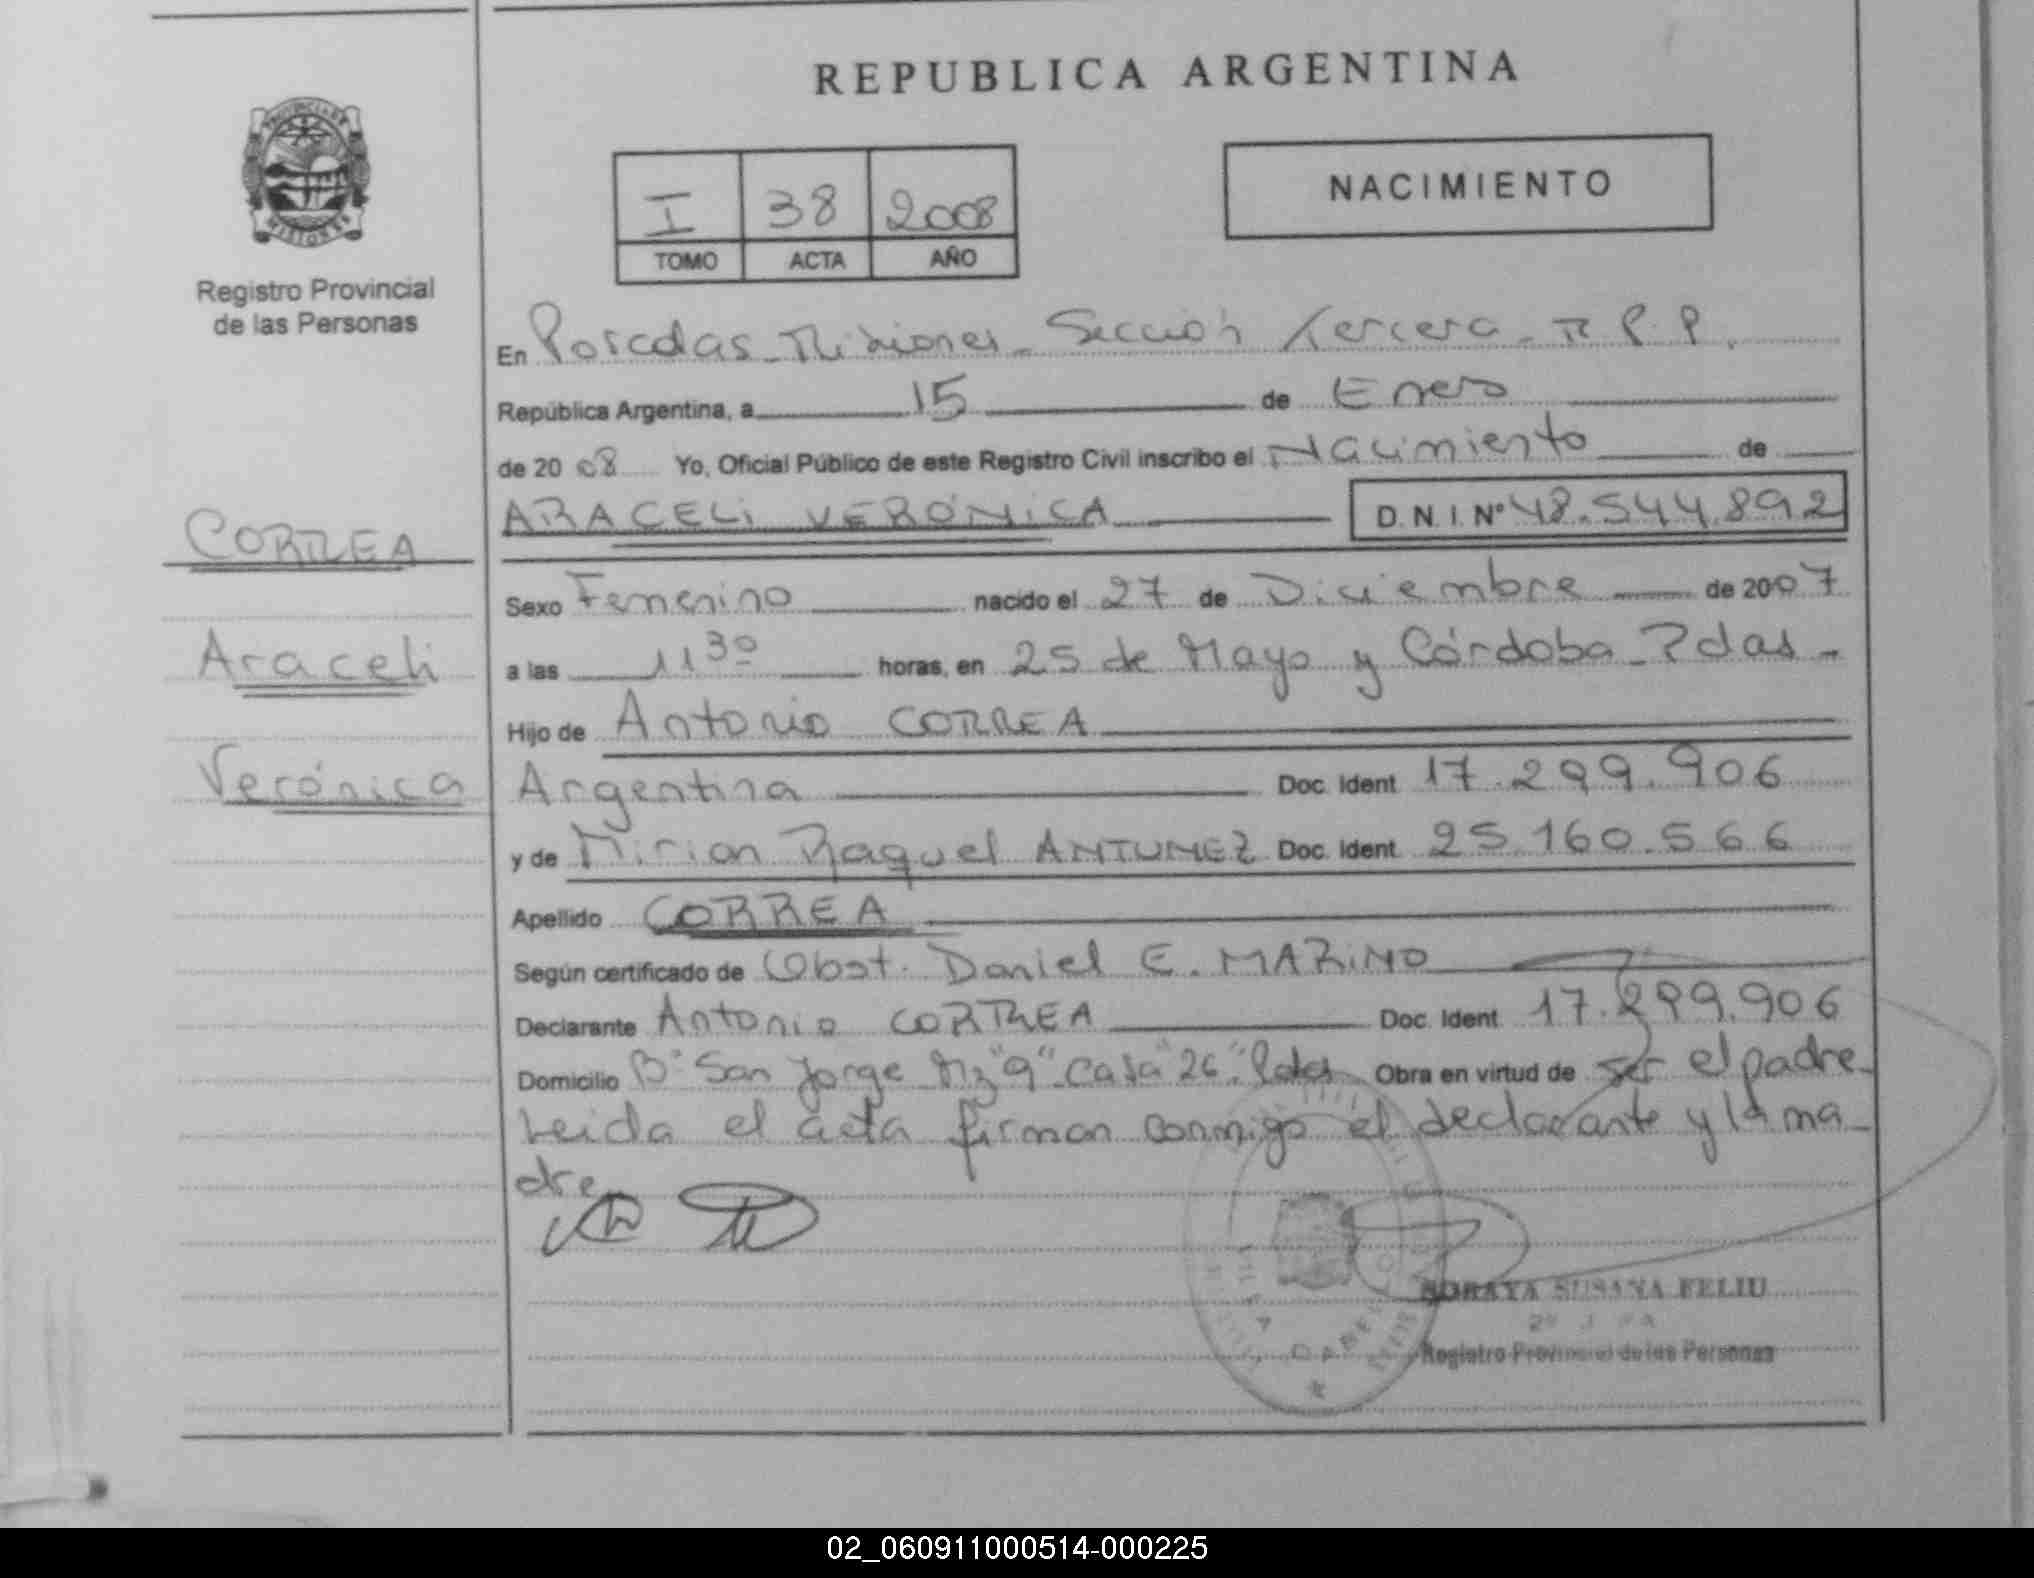 REPUBLICA ARGENTINA
PROVINCIA DE
MISIONES
Registro Provincial
de las Personas
I 38 2008
TOMO ACTA AÑO
NACIMIENTO
En Posadas - Misiones - Sección Tercera - R.P.P.
República Argentina, a 15 de Enero
de 2008 Yo, Oficial Público de este Registro Civil inscribo el Nacimiento de
ARACELI VERÓNICA D.N.I. Nº 48.544.892
CORREA
Araceli
Verónica
Sexo Femenino nacido el 27 de Diciembre de 2007
a las 11 30 horas, en 25 de Mayo y Córdoba - Pdas -
Hijo de Antonio CORREA
Argentina Doc. Ident 17.299.906
y de Mirian Raquel ANTUNEZ Doc. Ident 25.160.566
Apellido CORREA
Según certificado de Obst. Daniel E. MARINO
Declarante Antonio CORREA Doc. Ident 17.299.906
Domicilio Bº San Jorge Mz "9" Casa "26" Pdas Obra en virtud de ser el padre -
Leida el acta firman conmigo el declarante y la ma-
dre
SORAYA SUSANA FELIU
Registro Provincial de las Personas
02_060911000514-000225